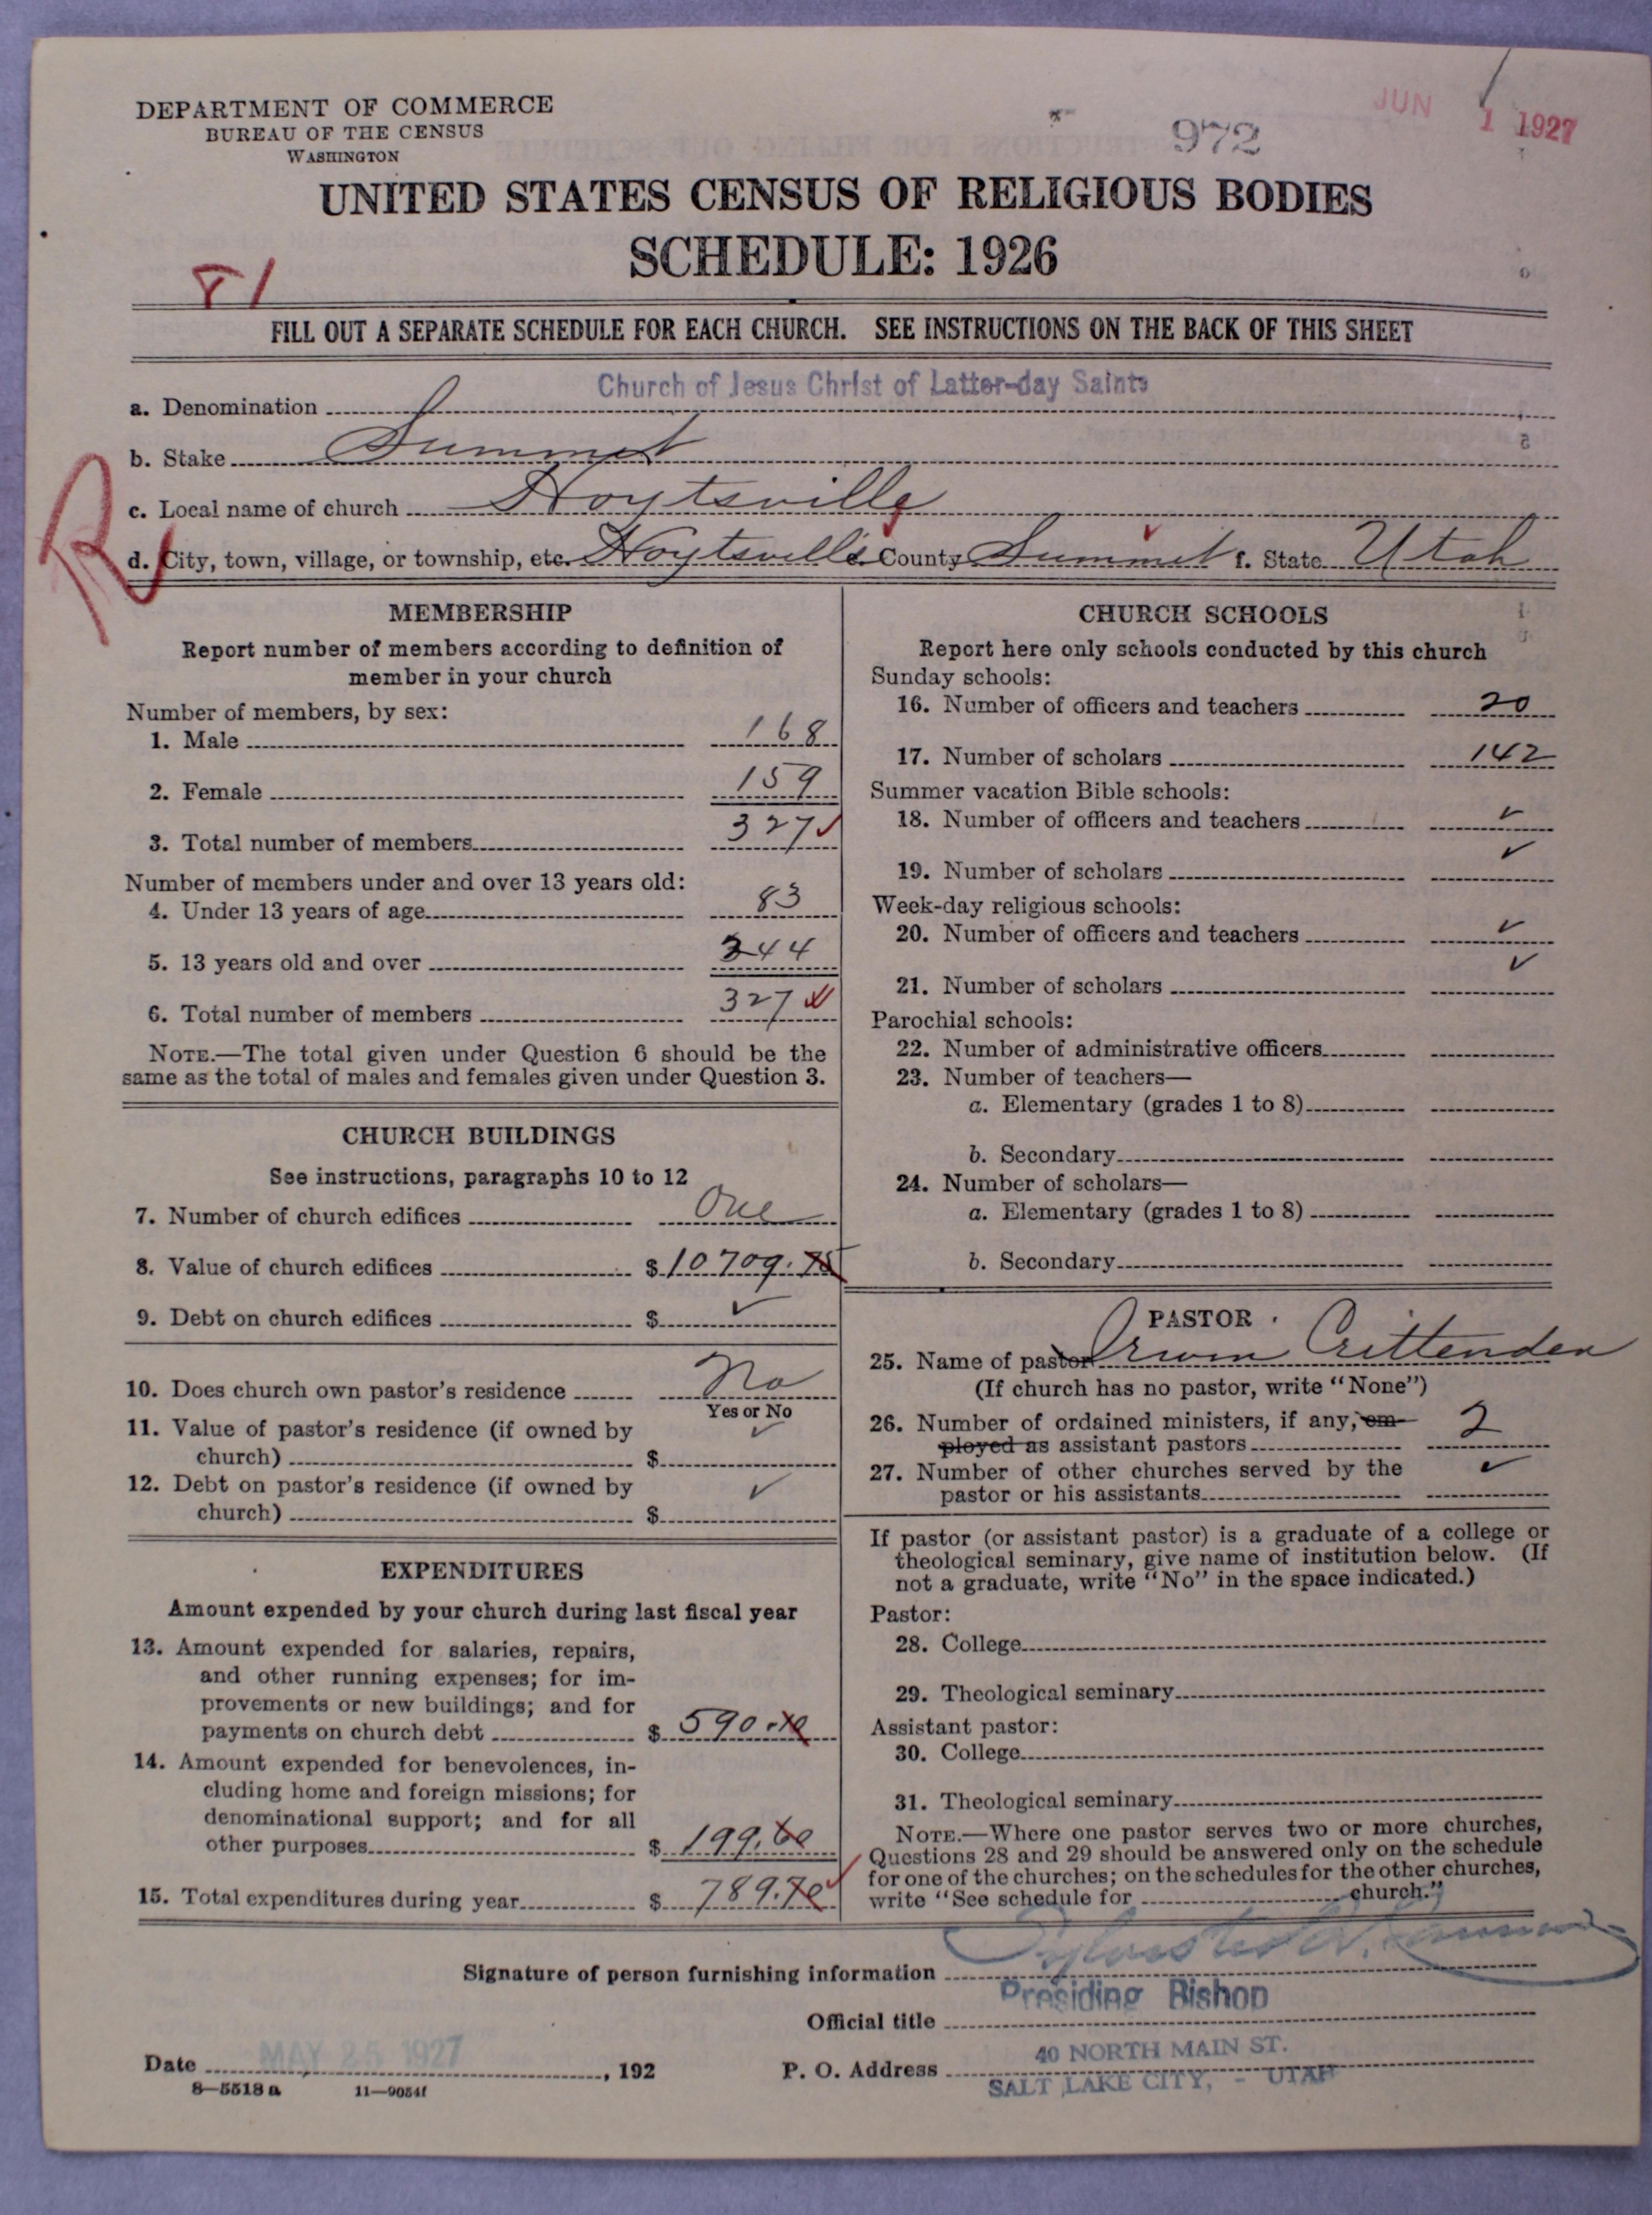 DEPARTMENT OF COMMERCE
BUREAU OF THE CENSUS
WASHINGTON
972
JUN 1 1927
UNITED STATES CENSUS OF RELIGIOUS BODIES
SCHEDULE: 1926
FILL OUT A SEPARATE SCHEDULE FOR EACH CHURCH. SEE INSTRUCTIONS ON THE BACK OF THIS SHEET
a. Denomination Church of Jesus Christ of Latter-day Saints
b. Stake Summit
c. Local name of church Hoytsville
d. City, town, village, or township, etc. Hoytsville e. County Summit f. State Utah
MEMBERSHIP
Report number of members according to definition of
member in your church
Number of members, by sex:
1. Male 168
2. Female 159
3. Total number of members 327
Number of members under and over 13 years old:
4. Under 13 years of age 83
5. 13 years old and over 244
6. Total number of members 327
NOTE.—The total given under Question 6 should be the
same as the total of males and females given under Question 3.
CHURCH BUILDINGS
See instructions, paragraphs 10 to 12
7. Number of church edifices One
8. Value of church edifices $10709.75
9. Debt on church edifices $ ✓
10. Does church own pastor's residence No
Yes or No
11. Value of pastor's residence (if owned by ✓
church) $
12. Debt on pastor's residence (if owned by ✓
church) $
EXPENDITURES
Amount expended by your church during last fiscal year
13. Amount expended for salaries, repairs,
and other running expenses; for im-
provements or new buildings; and for
payments on church debt $ 590.10
14. Amount expended for benevolences, in-
cluding home and foreign missions; for
denominational support; and for all
other purposes $ 199.60
15. Total expenditures during year $ 789.70
CHURCH SCHOOLS
Report here only schools conducted by this church
Sunday schools:
16. Number of officers and teachers 20
17. Number of scholars 142
Summer vacation Bible schools:
18. Number of officers and teachers ✓
19. Number of scholars ✓
Week-day religious schools:
20. Number of officers and teachers ✓
21. Number of scholars ✓
Parochial schools:
22. Number of administrative officers
23. Number of teachers—
a. Elementary (grades 1 to 8)
b. Secondary
24. Number of scholars—
a. Elementary (grades 1 to 8)
b. Secondary
PASTOR
25. Name of pastor Orwin Crittenden
(If church has no pastor, write "None")
26. Number of ordained ministers, if any, em-
ployed as assistant pastors 2
27. Number of other churches served by the ✓
pastor or his assistants
If pastor (or assistant pastor) is a graduate of a college or
theological seminary, give name of institution below. (If
not a graduate, write "No" in the space indicated.)
Pastor:
28. College
29. Theological seminary
Assistant pastor:
30. College
31. Theological seminary
NOTE.—Where one pastor serves two or more churches,
Questions 28 and 29 should be answered only on the schedule
for one of the churches; on the schedules for the other churches,
write "See schedule for church."
Signature of person furnishing information Sylvester Q. Cannon
Official title Presiding Bishop
Date MAY 25 1927, 192
P. O. Address 40 NORTH MAIN ST.
SALT LAKE CITY, - UTAH
8—5518 a 11—9054f